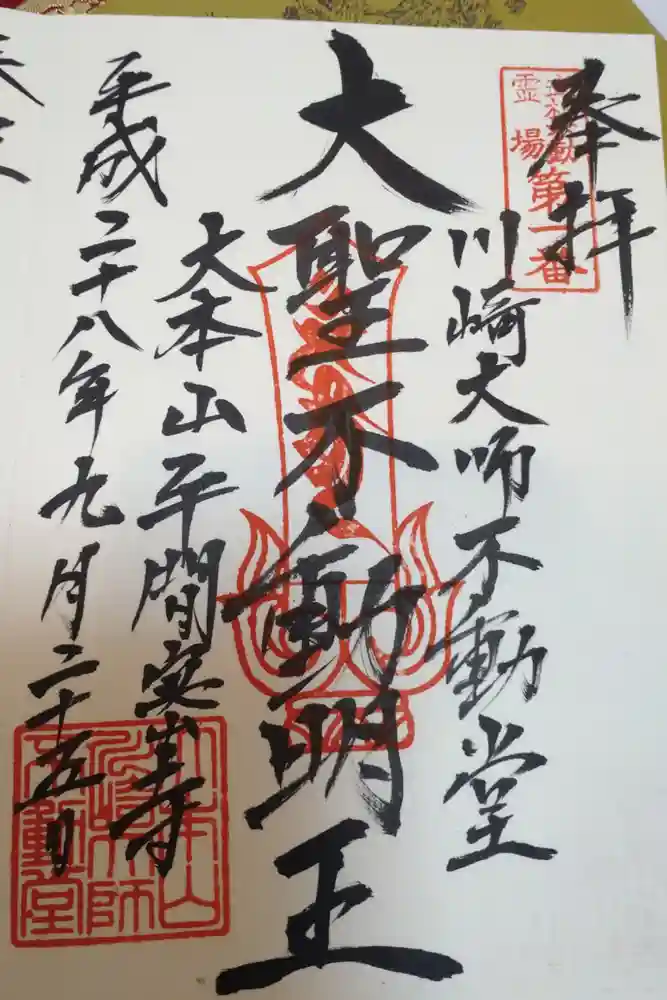 奉拝
霊場
第一番
川崎大师不動堂
大聖不動明王
大本山平間寺
平成二十八年九月二十五日
大本山
川崎大師
不動堂